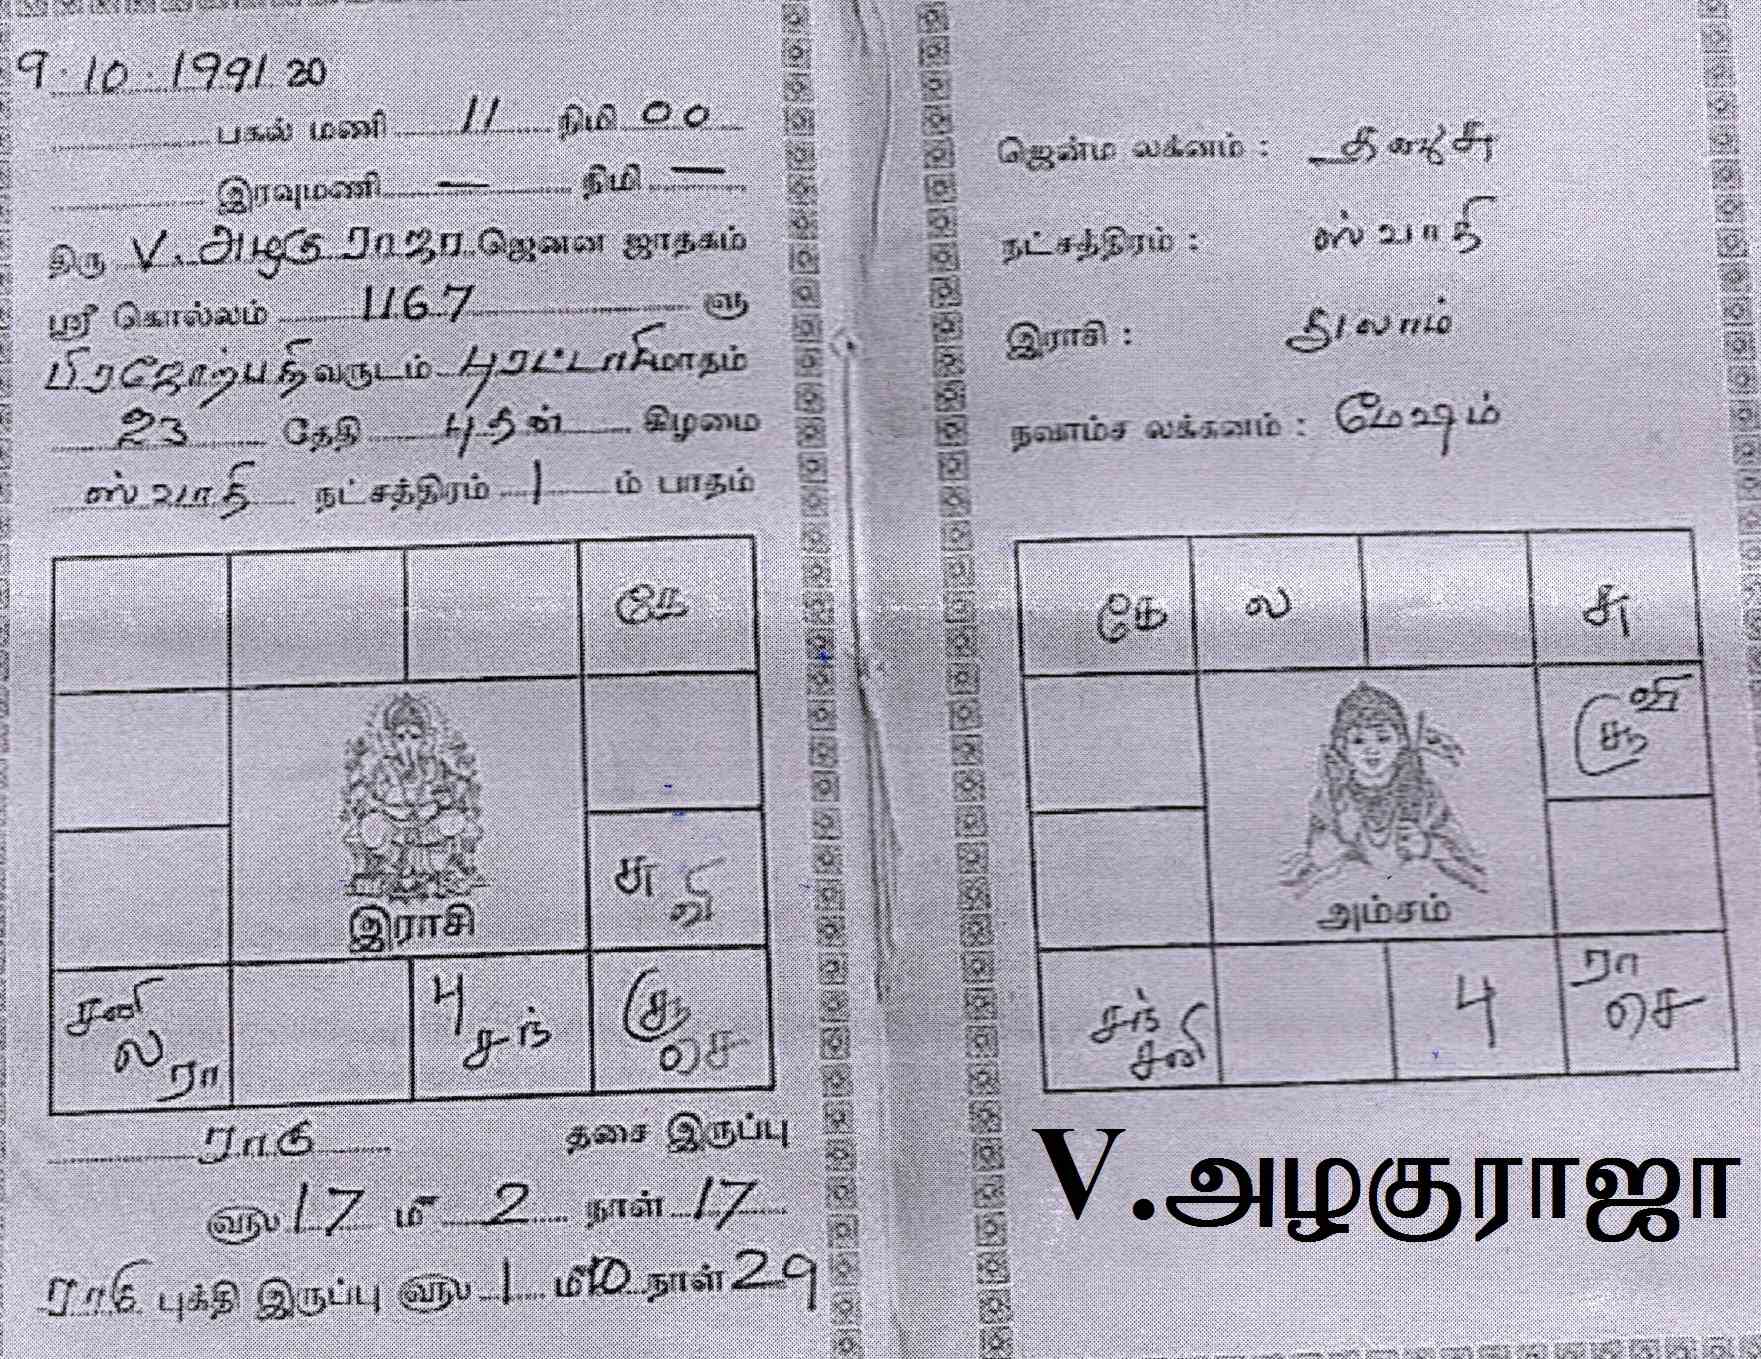 9.10.1991 ௭௦
பகல் மணி 11 நிமி 00
இரவுமணி — நிமி —
திரு V. அழகு ராஜா ஜெனன ஜாதகம்
ஸ்ரீ கொல்லம் 1167 ௵
பிரஜோற்பதி வருடம் புரட்டாசி மாதம்
23 தேதி புதன் கிழமை
ஸ்வாதி நட்சத்திரம் 1 ம் பாதம்
கே
சு
வி
இராசி
சனி
ல
ரா
பு
சந்
சூ
செ
ராகு தசை இருப்பு
௵ 17 மீ 2 நாள் 17
ராகு புக்தி இருப்பு ௵ 1 மீ 10 நாள் 29
ஜென்ம லக்னம் : தனுசு
நட்சத்திரம் : ஸ்வாதி
இராசி : துலாம்
நவாம்ச லக்கனம் : மேஷம்
கே ல சு
வி
சூ
அம்சம்
சந்
சனி
பு
ரா
செ
V.அழகுராஜா